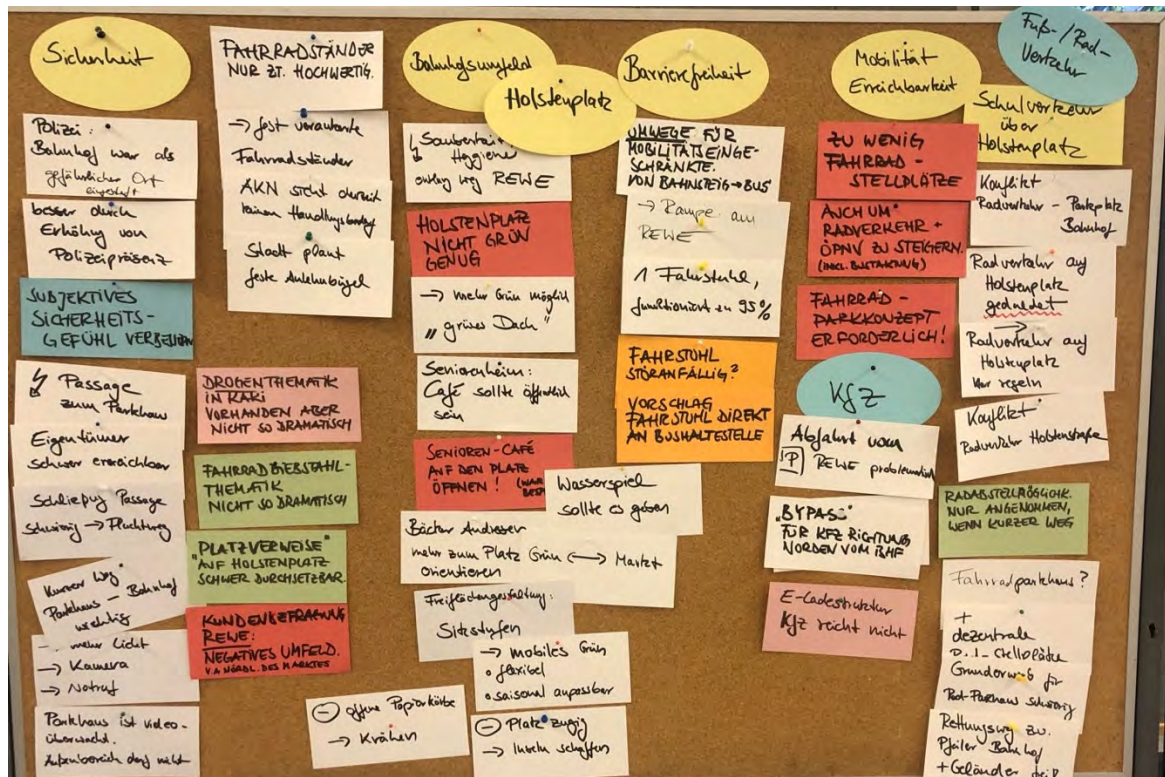 Sicherheit
Polizei:
Bahnhof war als
gefährlicher Ort
eingestuft
besser durch
Erhöhung von
Polizeipräsenz
SUBJEKTIVES
SICHERHEITS-
GEFÜHL VERBESSERN
Passage
zum Parkhaus
Eigentümer
schwer erreichbar
Schließung Passage
schwierig → Fluchtweg
Kurzer Weg
Parkhaus – Bahnhof
wichtig
mehr Licht
→ Kamera
→ Notruf
Parkhaus ist video-
überwacht.
Außenbereich darf nicht
FAHRRADSTÄNDER
NUR ZT. HOCHWERTIG.
→ fest verankerte
Fahrradständer
AKN sieht derzeit
keinen Handlungsbedarf
Stadt plant
feste Anlehnbügel
DROGENTHEMATIK
IN KAKI
VORHANDEN ABER
NICHT SO DRAMATISCH
FAHRRADDIEBSTAHL-
THEMATIK
NICHT SO DRAMATISCH
"PLATZVERWEISE"
AUF HOLSTENPLATZ
SCHWER DURCHSETZBAR.
KUNDENBEFRAGUNG
REWE:
NEGATIVES UMFELD.
V.A NÖRDL. DES MARKTES
Bahnhofsumfeld
Holstenplatz
Sauberkeit
Hygiene
entlang Weg REWE
HOLSTENPLATZ
NICHT GRÜN
GENUG
→ mehr Grün möglich
"grünes Dach"
Seniorenheim:
Café sollte öffentlich
sein
SENIOREN-CAFÉ
AUF DEN PLATZ
ÖFFNEN! (WAR
Wasserspiel
sollte es geben
Bäcker Andresen
mehr zum Platz
orientieren
Grün ⟷ Markt
Freiflächengestaltung:
Sitzstufen
→ mobiles Grün
o flexibel
o saisonal anpassbar
⊖ offene Papierkörbe
→ Krähen
⊖ Platz zugig
→ Inseln schaffen
Barrierefreiheit
UMWEGE FÜR
MOBILITÄTSEINGE-
SCHRÄNKTE.
VON BAHNSTEIG → BUS
→ Rampe am
REWE
1 Fahrstuhl,
funktioniert zu 95%
FAHRSTUHL
STÖRANFÄLLIG?
VORSCHLAG
FAHRSTUHL DIREKT
AN BUSHALTESTELLE
Mobilität
Erreichbarkeit
ZU WENIG
FAHRRAD-
STELLPLÄTZE
AUCH UM
RADVERKEHR +
ÖPNV ZU STEIGERN.
(INKL. BUSTAKTUNG)
FAHRRAD-
PARKKONZEPT
ERFORDERLICH!
Kfz
Abfahrt vom
P REWE problematisch
"BYPASS"
FÜR KFZ RICHTUNG
NORDEN VOM BHF
E-Ladestruktur
Kfz reicht nicht
Fuß-/Rad-
Verkehr
Schulverkehr
über
Holstenplatz
Konflikt
Radverkehr – Parkplatz
Bahnhof
Radverkehr auf
Holstenplatz
geduldet
→
Radverkehr auf
Holstenplatz
klar regeln
Konflikt
Radverkehr Holstenstraße
RADABSTELLMÖGLICHK.
NUR ANGENOMMEN,
WENN KURZER WEG
Fahrradparkhaus?
+
dezentrale
Stellplätze
Grunderwerb für
Rad-Parkhaus schwierig
Rettungsweg zu.
Pfeiler Bahnhof
+ Geländer